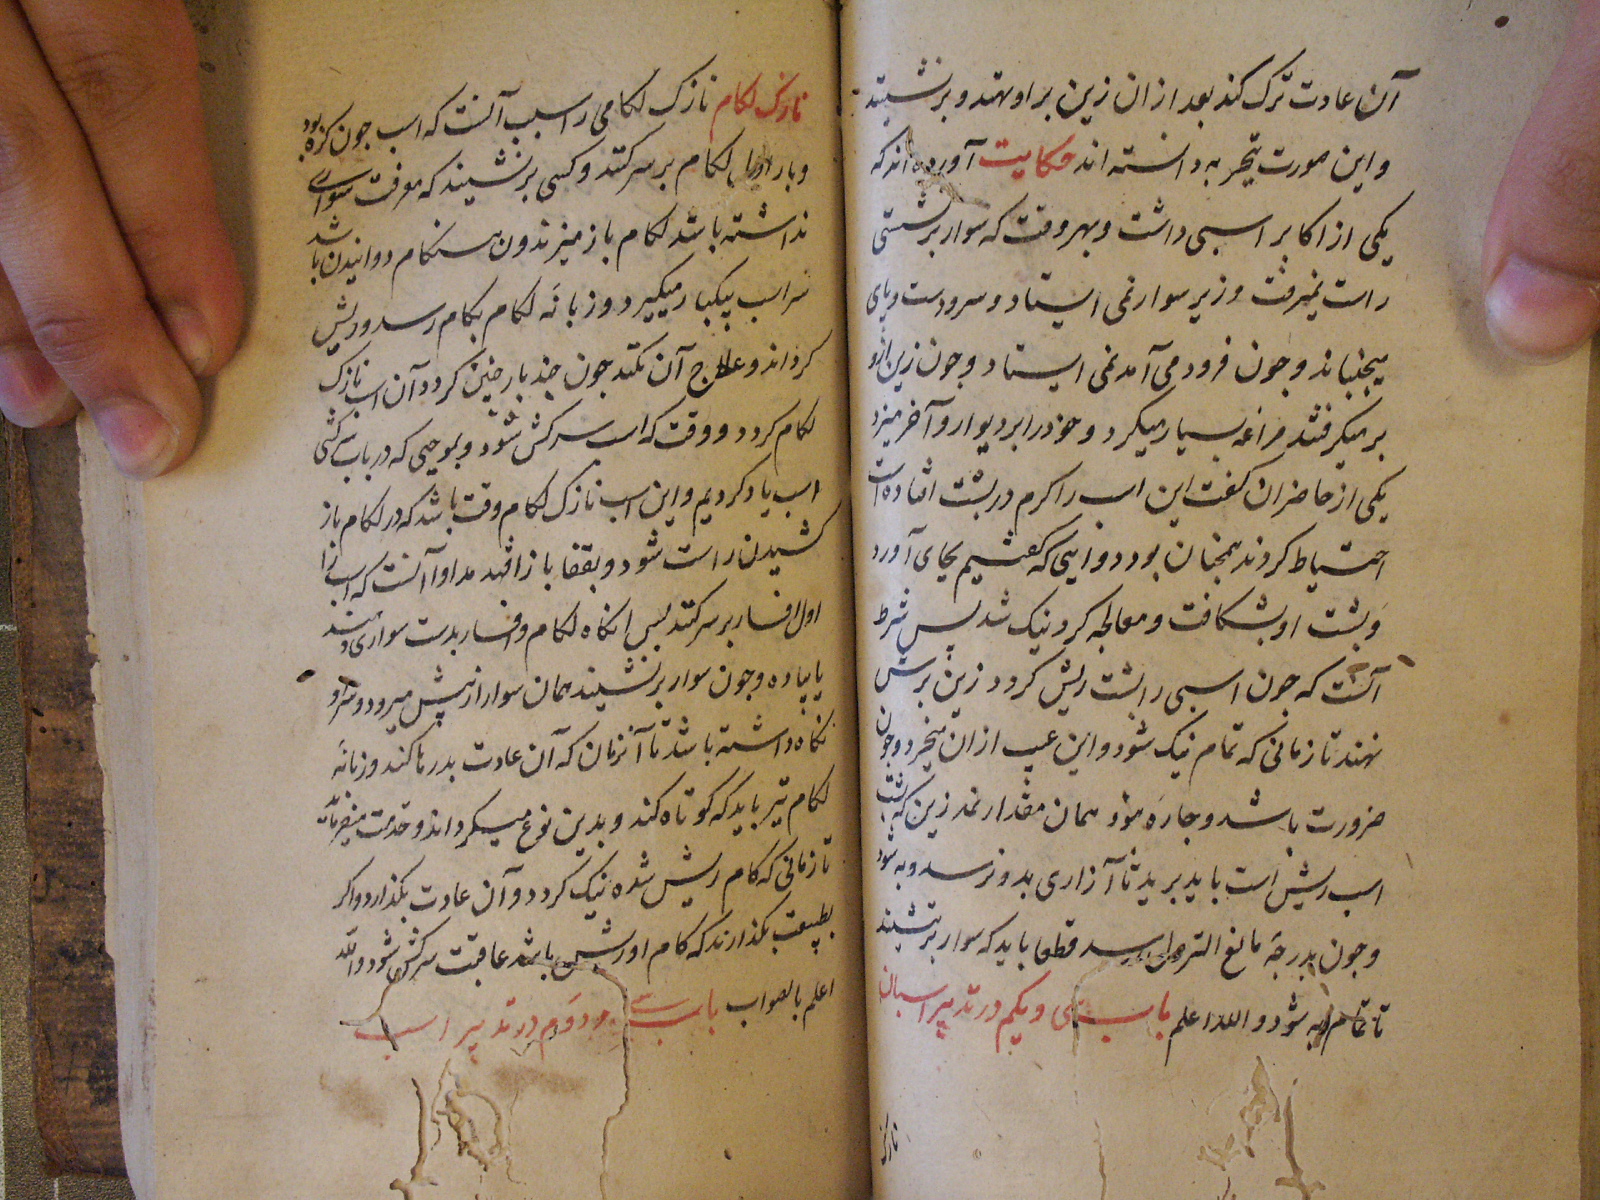 آن عادت ترک کند بعد از ان زین بر او نهند و بر نشینند
و این صورت بتجربه دانسته اند حکایت آورده اند که
یکی از اکابر اسبی داشت و بهر وقت که سوار بر نشستی
راست نمیرفت و زیر سوار نمی ایستاد و سر و دست و پای
میجنباند و چون فرود می آمد نمی ایستاد و چون زین ازو
بر میکرفتند مراغه بسیار میکرد و خود را بر دیوار و آخر میزد
یکی از حاضران کفت این اسب را کرم در پشت افتاده است
احتیاط کردند همچنان بود دوایی که کفتیم بجای آورد
و پشت او بشکافت و معالجه کرد نیک شد پس شرط
آنست که چون اسبی را پشت ریش کردد زین برش
نهند تا زمانی که تمام نیک شود و این عیب از ان میخیزد و چون
ضرورت باشد و چاره نبود همان مقدار نمد زین که پشت
اسب ریش است باید برید تا آزاری بدو نرسد و به شود
و چون بدرجه مالغ رسد قطعا باید که سوار بر ننشینند
تا تمام به شود و الله اعلم باب سی و یکم در تدبیر اسبان
نازک
نازک لکام نازک لکامی را سبب آنست که اسب چون کره بود
و بار اول لکام بر سر کنند و کسی بر نشیند که معرفت سواری
نداشته باشد لکام باز میزند و ن هنکام دوانیدن باشد
سر اسب بیکبار میکیرد و زبانه لکام بکام رسد و ریش
کرداند و علاج آن نکند چون چند بار چنین کردد آن اسب نازک
لکام کردد و وقت که اسب سرکش شود و بموجبی که در باب سرکشی
اسب یاد کردیم و این اسب نازک لکام وقت باشد که در لکام باز
کشیدن راست شود و بقفا باز افتد مداوا آنست که اسب را
اول افسار بر سر کنند پس انکاه لکام و افسار بدست سواری دهند
یا پیاده و چون سوار بر نشیند همان سوار از پیش میرود و سر او
نکاه داشته باشد تا آنزمان که آن عادت بد رها کند و زبانه
لکام نیز باید که کوتاه کند و بدین نوع میکرداند و خدمت میفرماید
تا زمانی که کام ریش شده نیک کردد و آن عادت بکذارد و اکر
بطبیعت بکذارند که کام او ریش باشد عاقبت سرکش شود و الله
اعلم بالصواب باب سی و دوم در تدبیر اسب